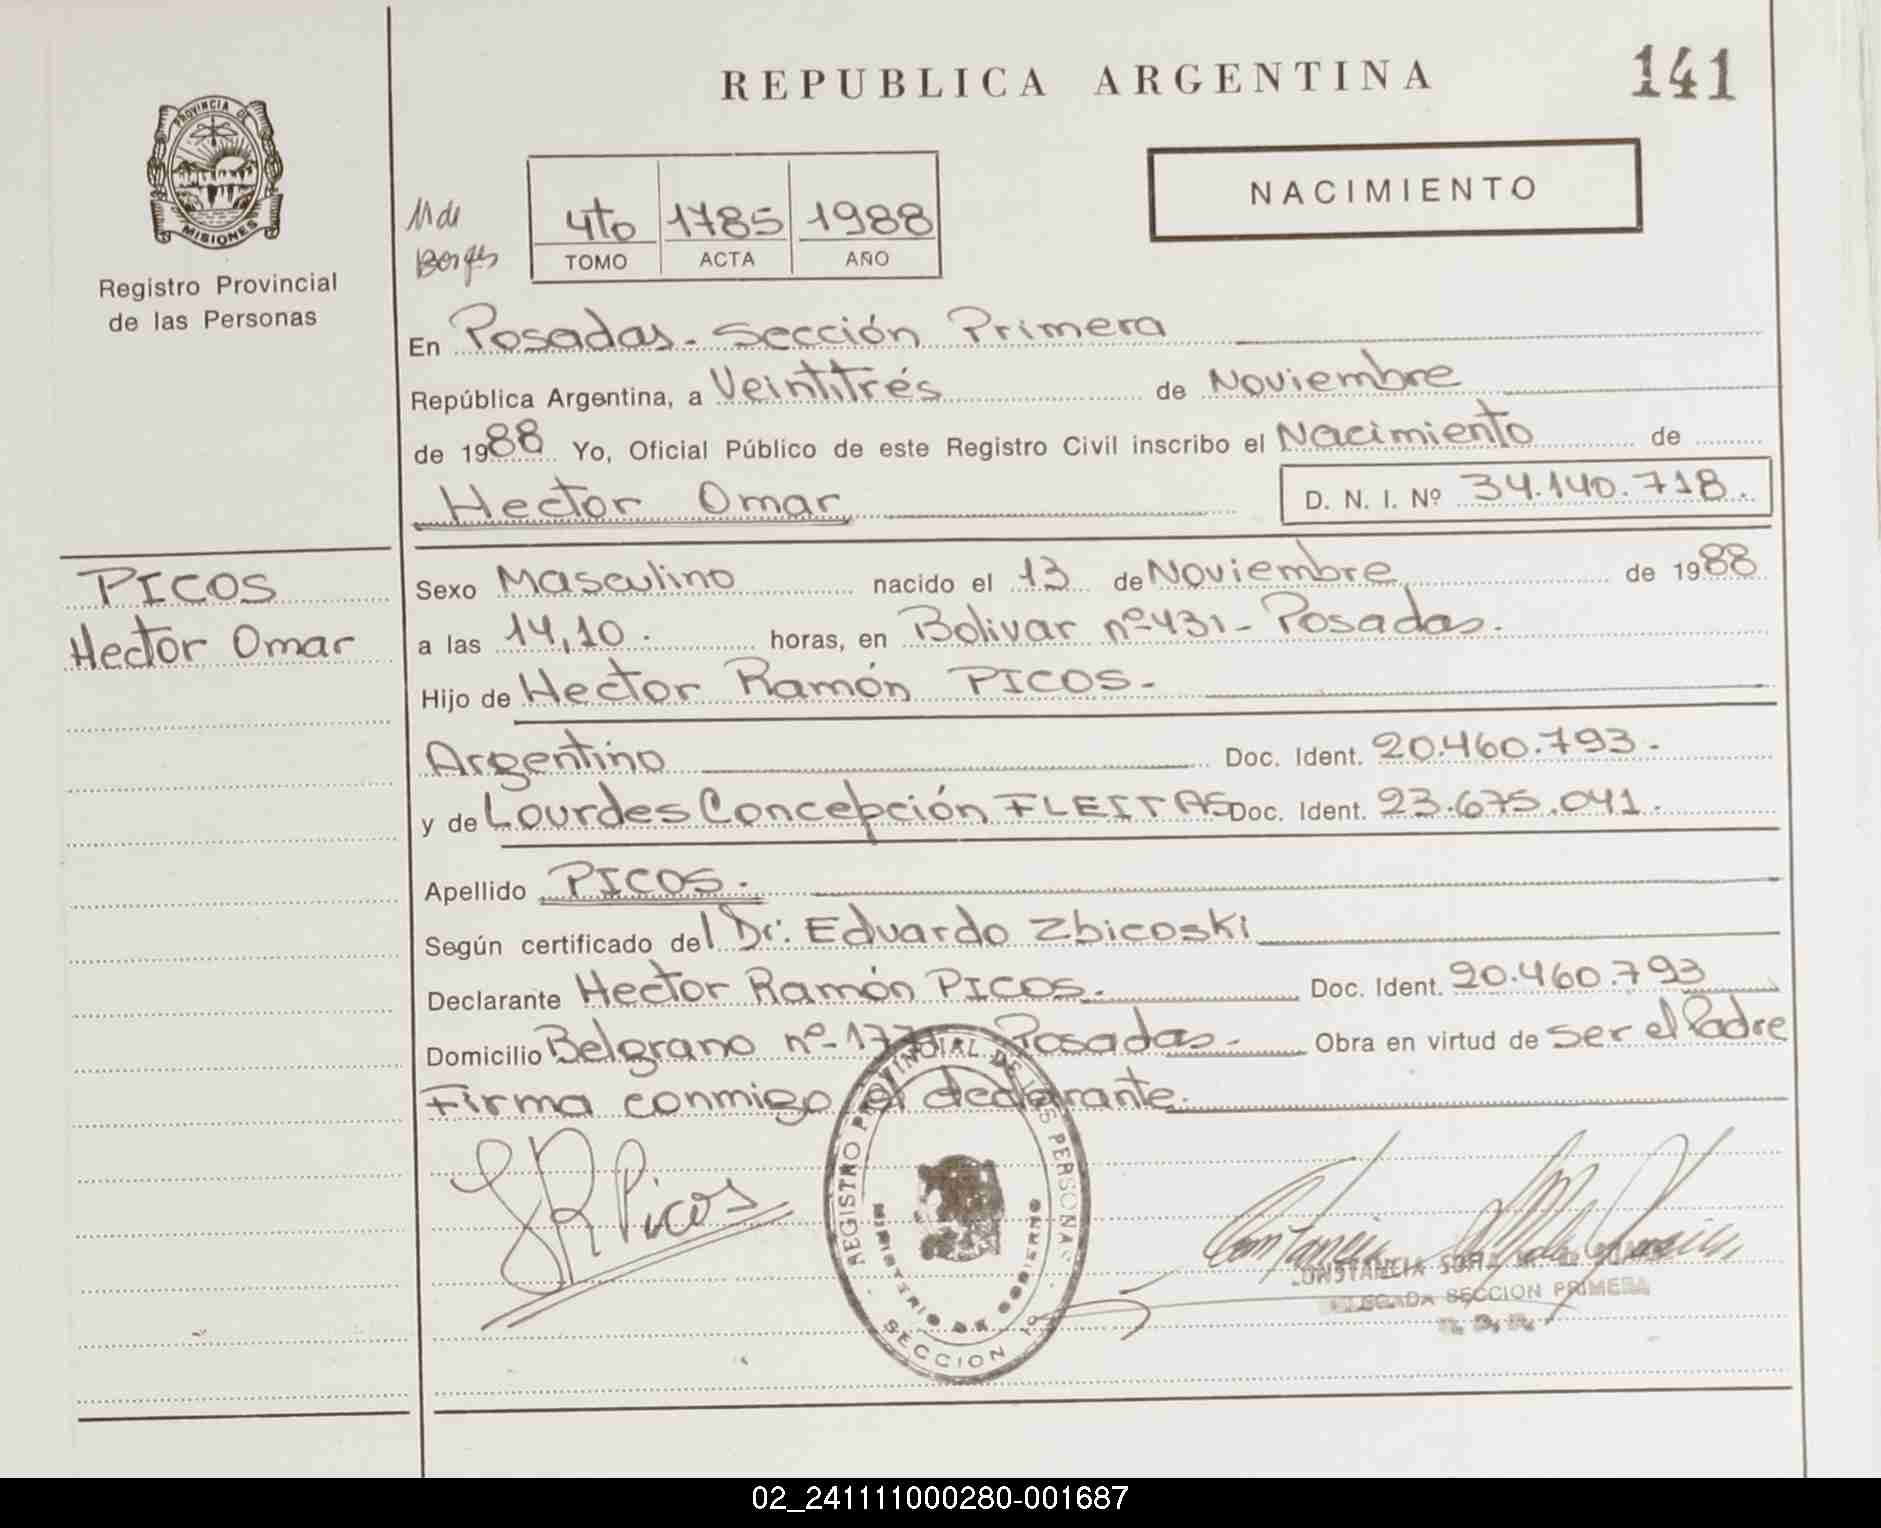 REPUBLICA ARGENTINA
141
PROVINCIA DE
MISIONES
Registro Provincial
de las Personas
NACIMIENTO
4to 1785 1988
TOMO ACTA AÑO
En Posadas - Sección Primera
República Argentina, a Veintitrés de Noviembre
de 1988 Yo, Oficial Público de este Registro Civil inscribo el Nacimiento de
Hector Omar D. N. I. Nº 34.140.718.
PICOS
Hector Omar
Sexo Masculino nacido el 13 de Noviembre de 1988
a las 14,10. horas, en Bolivar nº 431 - Posadas.
Hijo de Hector Ramón PICOS.-
Argentino Doc. Ident. 20.460.793.-
y de Lourdes Concepción FLEITAS Doc. Ident. 23.675.041.-
Apellido PICOS.-
Según certificado del Dr. Eduardo Zbicoski
Declarante Hector Ramón PICOS.- Doc. Ident. 20.460.793
Domicilio Belgrano nº Posadas.- Obra en virtud de ser el Padre
Firma conmigo el declarante.
HRPicos
REGISTRO PROVINCIAL DE LAS PERSONAS
MINISTERIO DE GOBIERNO
SECCION 1º
CONSTANCIA SOFIA
DELEGADA SECCION PRIMERA
02_241111000280-001687